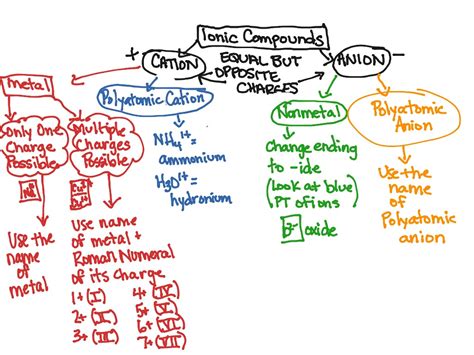 Ionic Compounds
+
CATION
EQUAL BUT
OPPOSITE
CHARGES
ANION
−
metal
Only One
Charge
Possible
Use the
name
of
metal
Multiple
Charges
Possible
Use name
of metal +
Roman Numeral
of its charge
1+ (I)
2+ (II)
3+ (III)
4+ (IV)
5+ (V)
6+ (VI)
7+ (VII)
Polyatomic Cation
NH₄¹⁺ =
ammonium
H₃O¹⁺ =
hydronium
Nonmetal
Change ending
to -ide
(Look at blue)
PT of ions
oxide
Polyatomic
Anion
Use the
name
of
Polyatomic
anion